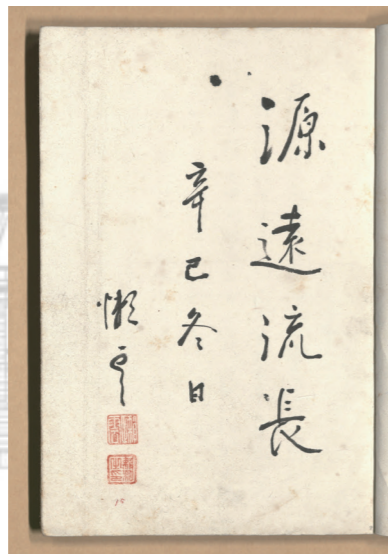 源遠流長
辛巳冬日
懶雲